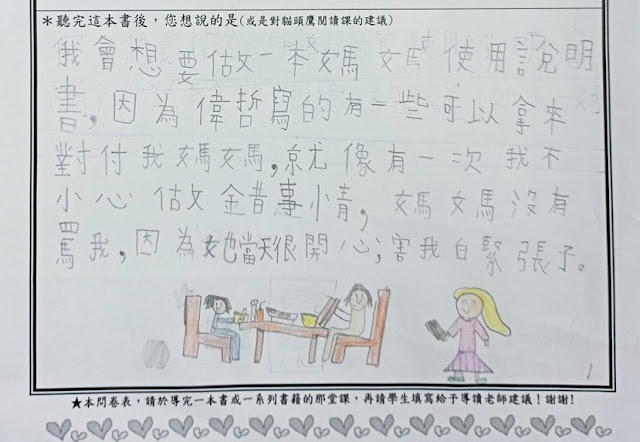 ＊聽完這本書後，您想說的是(或是對貓頭鷹閱讀課的建議)
我會想要做一本媽媽使用說明
書，因為偉哲寫的有一些可以拿來
對付我媽媽，就像有一次我不
小心做錯事情，媽媽沒有
罵我，因為她當天很開心，害我白緊張了。
★本問卷表，請於導完一本書或一系列書籍的那堂課，再請學生填寫給予導讀老師建議！謝謝！